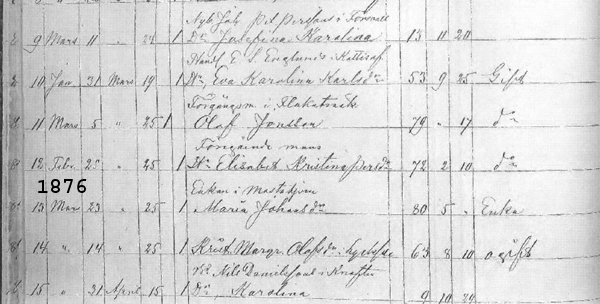 Nyb. Joh. Pet. Perssons i Försvall
9 Mars 11 " 24 1 Dr. Josefina Karolina 13 10 20
Handl. E. S. Englunds
10 Jan. 31 Mars 19 1 H. Eva Karolina Karlsdr 53 9 25 Gift
Förgångsm. i Flakaträsk
11 Mars 5 " 25 1 Olof Jonsson 79 - 17 do
Föregående mans
12 Febr. 25 " 25 1 H. Elisabet Kristina Persdr 72 2 10 do
1876
Enkan i
13 Mars 23 " 25 1 Maria Johansdr 80 5 " Enka
14 " 14 " 25 1 Krist. Margr. Olofsdr 63 8 10 ogift
Nils Danielssons i Knaften
15 " 21 April 15 1 Dr. Karolina 9 10 29